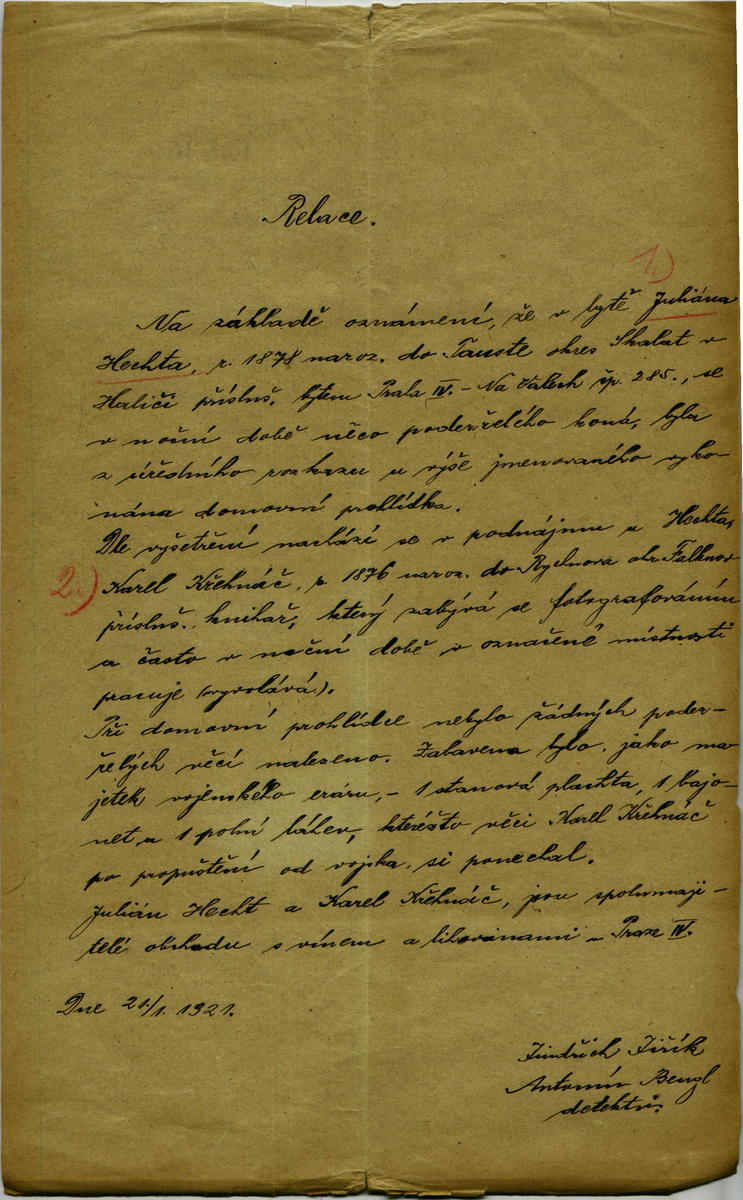 Relace.
1.)
Na základě oznámení, že v bytě Juliána
Hechta, r. 1878 naroz. do Tauste okres Skalat v
Haliči přísluš. bytem Praha IV. – Na Valech čp. 285., se
v noční době něco podezřelého koná, byla
z úředního rozkazu u výše jmenovaného vyko-
nána domovní prohlídka.
Dle vyšetření nachází se v podnájmu u Hechta,
2.) Karel Křehnáč, r. 1876 naroz. do Rychnova okr. Falknov
přísluš. knihař, který zabývá se fotografováním
a často v noční době v označené místnosti
pracuje (vyvolává).
Při domovní prohlídce nebylo žádných podez-
řelých věcí nalezeno. Zabaveno bylo, jako ma-
jetek vojenského eráru, – 1 stanová plachta, 1 bajo-
net a 1 polní láhev, kteréžto věci Karel Křehnáč
po propuštění od vojska, si ponechal.
Julián Hecht a Karel Křehnáč, jsou spolumaji-
telé obchodu s vínem a lihovinami v Praze IV.
Dne 21./1. 1921.
Jindřich Jiřík
Antonín Bengl
detektivi